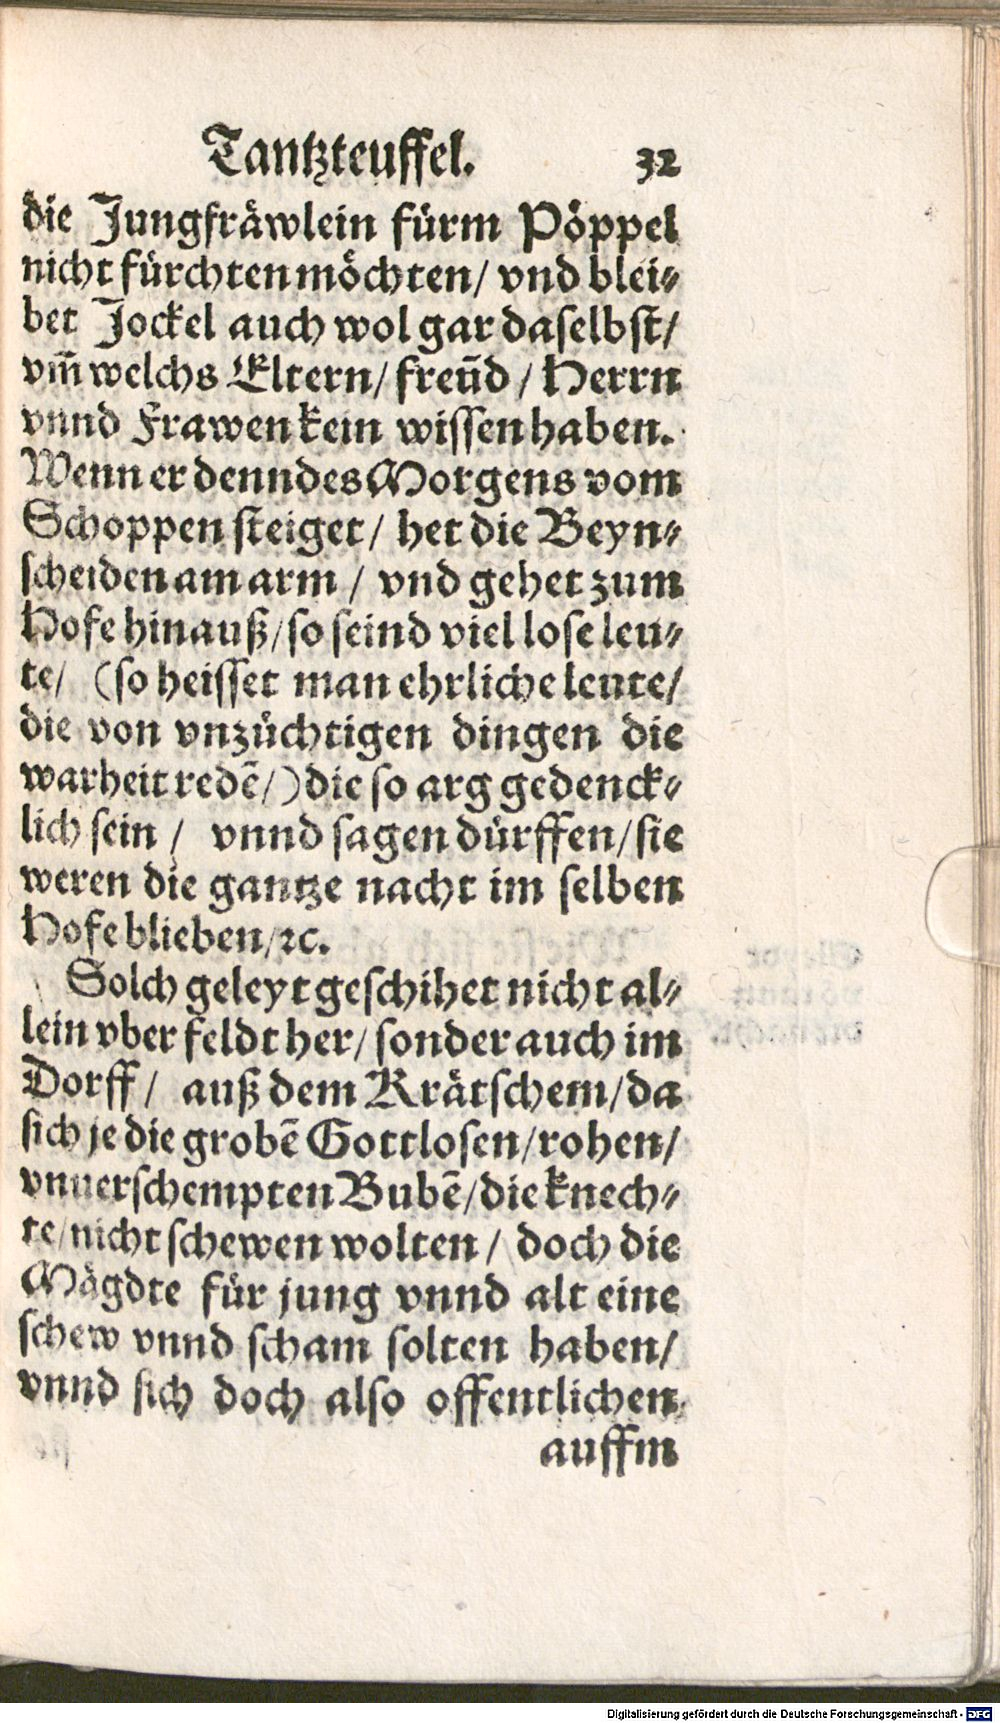 Tantzteuffel. 32
die Jungfräwlein fürm Pöppel
nicht fürchten möchten/ vnd blei⸗
bet Jockel auch wol gar daselbst/
vm̄ welchs Eltern/ freūd / Herrn
vnnd Frawen kein wissen haben.
Wenn er denn des Morgens vom
Schoppen steiget/ het die Beyn⸗
scheiden am arm / vnd gehet zum
Hofe hinauß/ so seind viel lose leu⸗
te/ (so heisset man ehrliche leute/
die von vnzüchtigen dingen die
warheit redē/) die so arg gedenck⸗
lich sein / vnnd sagen dürffen/ sie
weren die gantze nacht im selben
Hofe blieben/ ꝛc.
Solch geleyt geschihet nicht al⸗
lein vber feldt her/ sonder auch im
Dorff/ auß dem Krätschem/ da
sich je die grobē Gottlosen/ rohen/
vnuerschempten Bubē/ die knech⸗
te/ nicht schewen wolten/ doch die
Mägdte für jung vnnd alt eine
schew vnnd scham solten haben/
vnnd sich doch also offentlichen
auffm
Digitalisierung gefördert durch die Deutsche Forschungsgemeinschaft - DFG